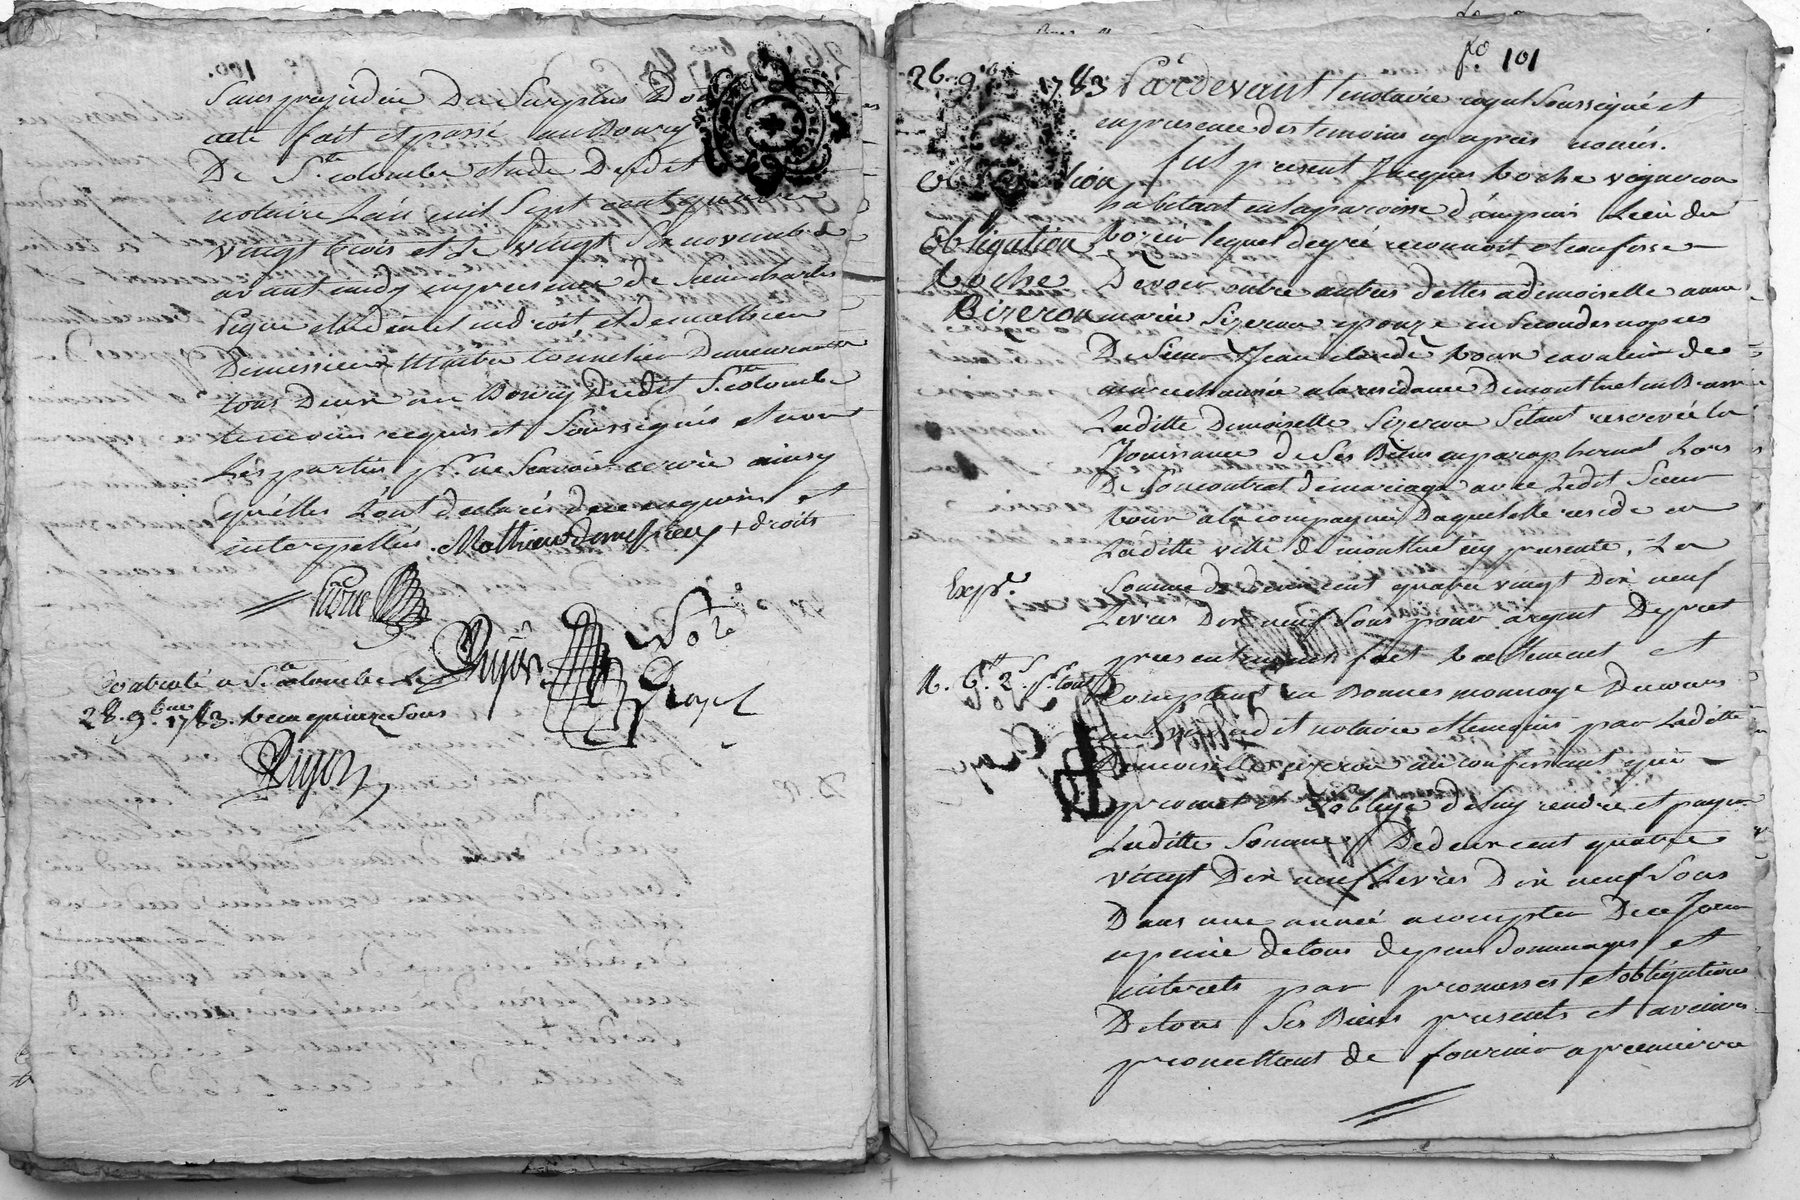 Sans prejudice Du Surplus Dont
acte fait et passé au Bourg
De Ste colombe etude Dudit
notaire L'an mil Sept cent quatre
vingt trois et Le vingt Six novembre
avant midy en presence de Sieur charles
et de Mathieu
Demessieux Maitre tonnelier Demeurants
tous Deux au Bourg Dudit Ste colombe
temoins requis et Soussignés et non
Les parties pr. ne Scavoir ecrire ainsy
qu'elles L'ont declarés de ce enquises et
interpellés. Mathieu demessieux + droits
Pujon
Controlé a Ste Colombe Le
28. 9bre. 1783. Recu quinze Sous
Pujon
fo. 101
26. 9bre 1783
Pardevant Le notaire royal Soussigné et
en presence des temoins cy après només.
Obligation
Roche
Sizeron
fut present Jacques Roche vigneron
habitant en la paroisse d'ampuis Lieu du
Rozier lequel de gré reconnoit et confesse
Devoir outre autres dettes a demoiselle anne
marie Sizeron epouze en Secondes nopces
De Sieur Jean claude Roux cavalier de
marechaussée a la residance De montluel en Bresse
Laditte Demoiselle Sizeron S'etant reservée la
Jouissance de Ses Biens en paraphernal Lors
De Son contrat de mariage avec Ledit Sieur
Roux a la compagnie Duquel elle reside en
Laditte ville de montluel icy presente, La
Expé.
Somme de deux cent quatre vingt Dix neuf
Livres Dix neuf Sous pour argent De pret
presentement fait reellement et
comptant en Bonnes monnoye Du cours
au vu dudit notaire et temoins par Laditte
Demoiselle Sizeron au confessant qui
promet et S'oblige de luy rendre et payer
Laditte Somme De deux cent quatre
vingt Dix neuf Livres Dix neuf Sous
Dans une année a compter De ce Jour
a peine de tous depens Dommages et
interets par promesses et obligations
De tous Ses Biens presents et avenirs
promettant de fournir a premiere